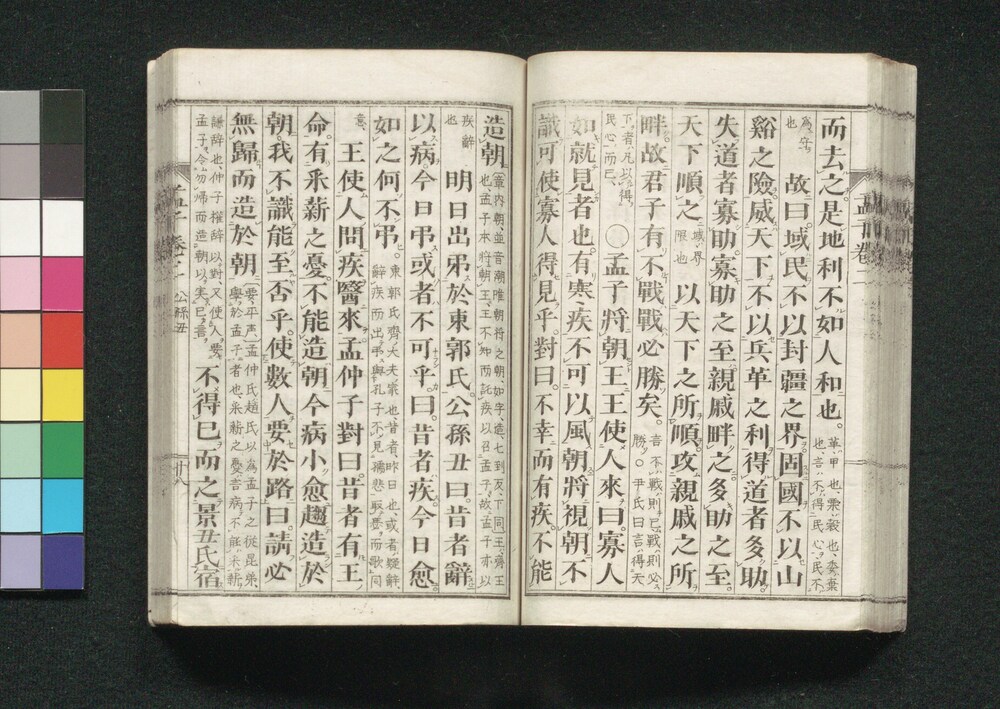 孟子卷二
而去之。是地利不如人和也。革甲也、粟穀也、委棄也、言不得民心、民不
為守也　故曰。域民不以封疆之界。固國不以山
谿之險。威天下不以兵革之利。得道者多助。
失道者寡助。寡助之至。親戚畔之。多助之至。
天下順之。域界限也　以天下之所順。攻親戚之所
畔。故君子有不戰。戰必勝矣。言不戰則已、戰則必勝。○尹氏曰言得天
下者、凡以得民心而已、　○孟子將朝王。王使人來曰。寡人
如就見者也。有寒疾。不可以風。朝將視朝。不
識可使寡人得見乎。對曰。不幸而有疾。不能
造朝。章內朝、並音潮、惟朝將之朝、如字、造七到反、下同、王齊王也、孟子本將朝王、王不知而託疾以召孟子、故孟子亦以
疾辭也　明日出弔於東郭氏。公孫丑曰。昔者辭
以病。今日弔。或者不可乎。曰。昔者疾。今日愈。
如之何不弔。東郭氏齊大夫家也、昔者昨日也、或者疑辭、辭疾而出弔、與孔子不見孺悲、取瑟而歌同
意、　王使人問疾。醫來。孟仲子對曰。昔者有王
命。有采薪之憂。不能造朝。今病小愈。趨造於
朝。我不識能至否乎。使數人要於路曰。請必
無歸而造於朝。要平声、孟仲氏趙氏以為孟子之從昆弟、學於孟子者也、采薪之憂、言病不能采薪、
謙辞也、仲子權辞以對、又使人要孟子、令勿歸而造朝、以実已言、　不得已而之景丑氏宿
孟子 卷之二　公孫丑　廿八